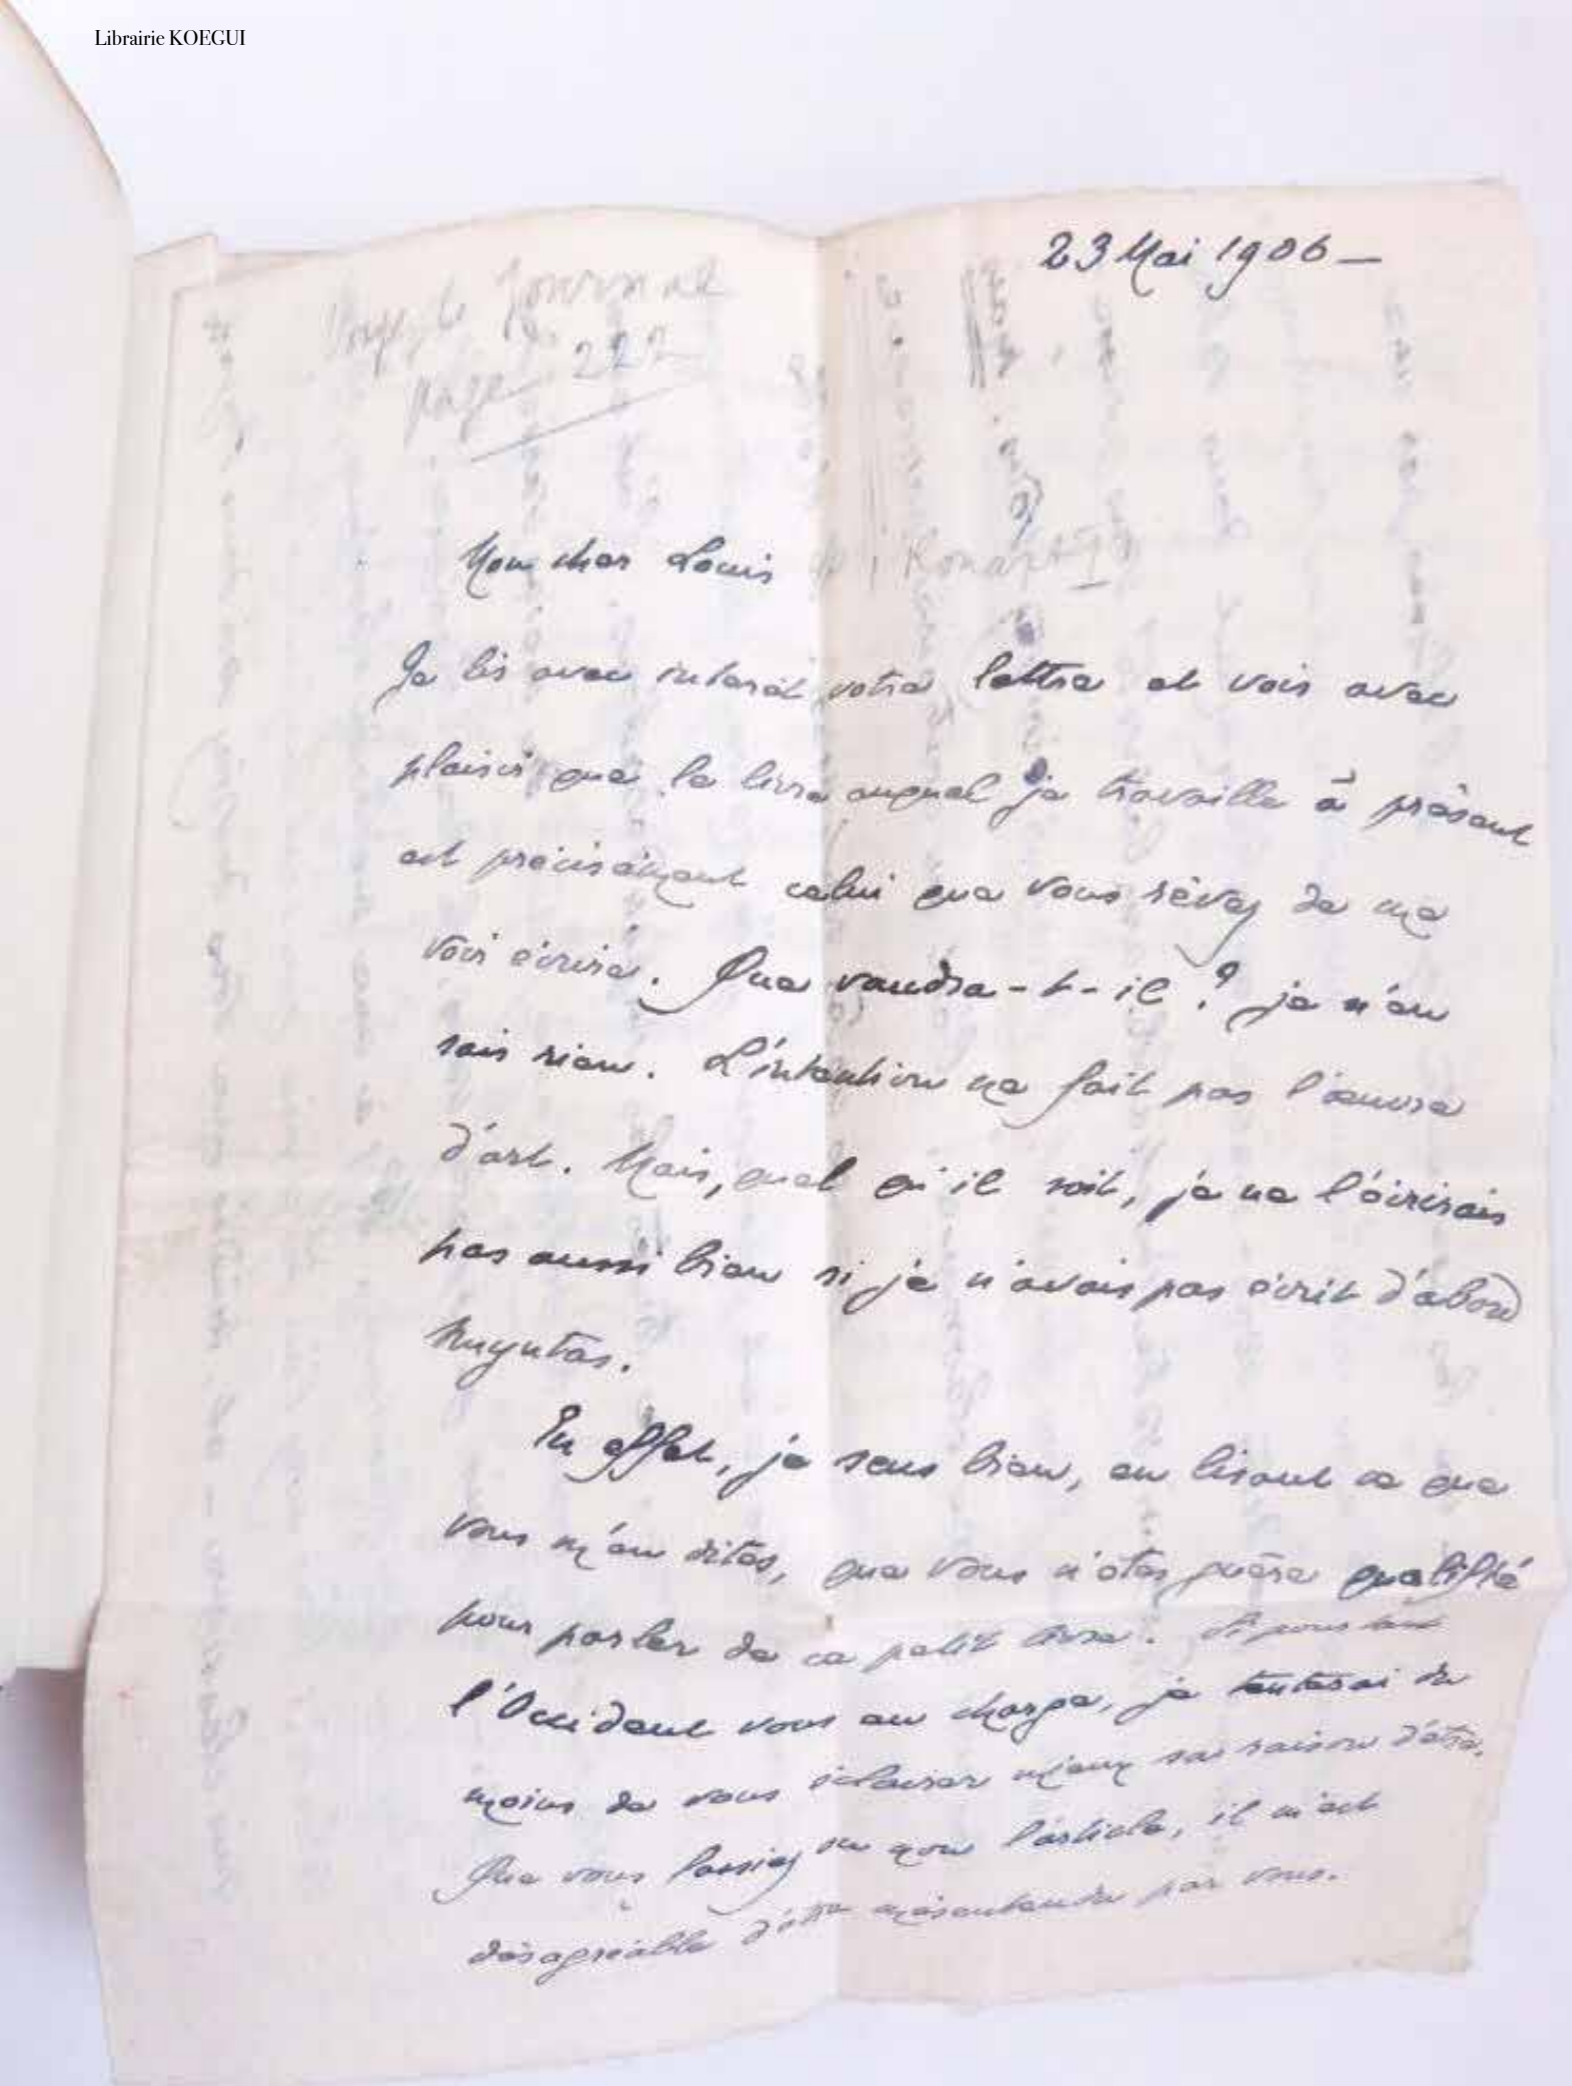 Librairie KOEGUI
23 Mai 1906 —
Journal
page 222
Mon cher Louis Rouart
Je lis avec intérêt votre lettre et vois avec
plaisir que le livre auquel je travaille à présent
est précisément celui que vous rêvez de me
voir écrire. Que vaudra-t-il ? je n'en
sais rien. L'intention ne fait pas l'œuvre
d'art. Mais, quel qu'il soit, je ne l'écrirais
pas aussi bien si je n'avais pas écrit d'abord
Amyntas.
En effet, je sens bien, en lisant ce que
vous m'en dites, que vous n'êtes guère qualifié
pour parler de ce petit livre. Si pourtant
l'Occident vous en charge, je tenterai du
moins de vous éclairer mieux sur sa raison d'être.
Que vous fassiez ou non l'article, il m'est
désagréable d'être mésentendu par vous.